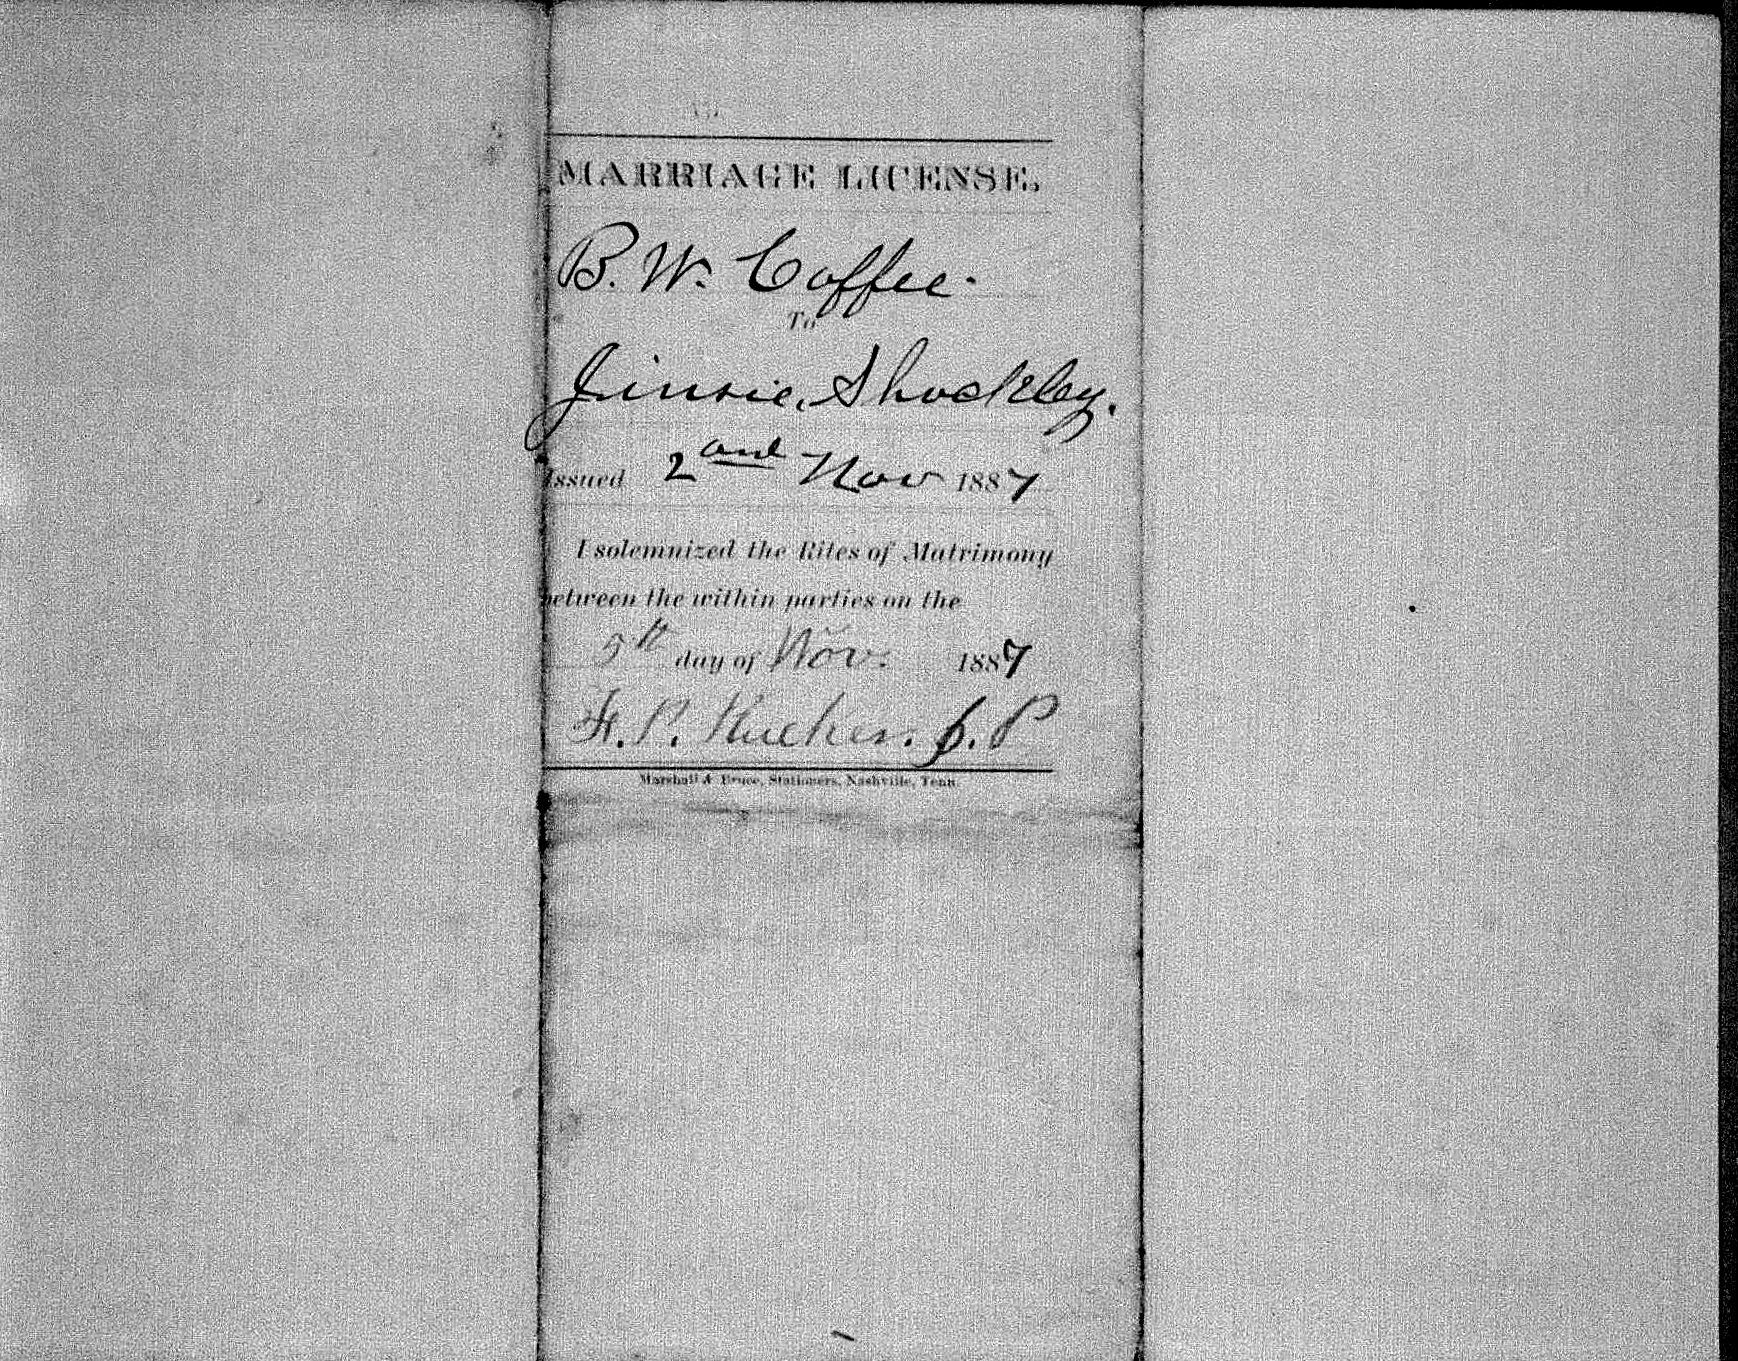 MARRIAGE LICENSE,
B. W. Coffee.
To
Jinsie, Shockley.
Issued 2 and Nov 1887
I solemnized the Rites of Matrimony
between the within parties on the
5th day of Nov. 1887
P. J. P
Marshall & Bruce, Stationers, Nashville, Tenn.